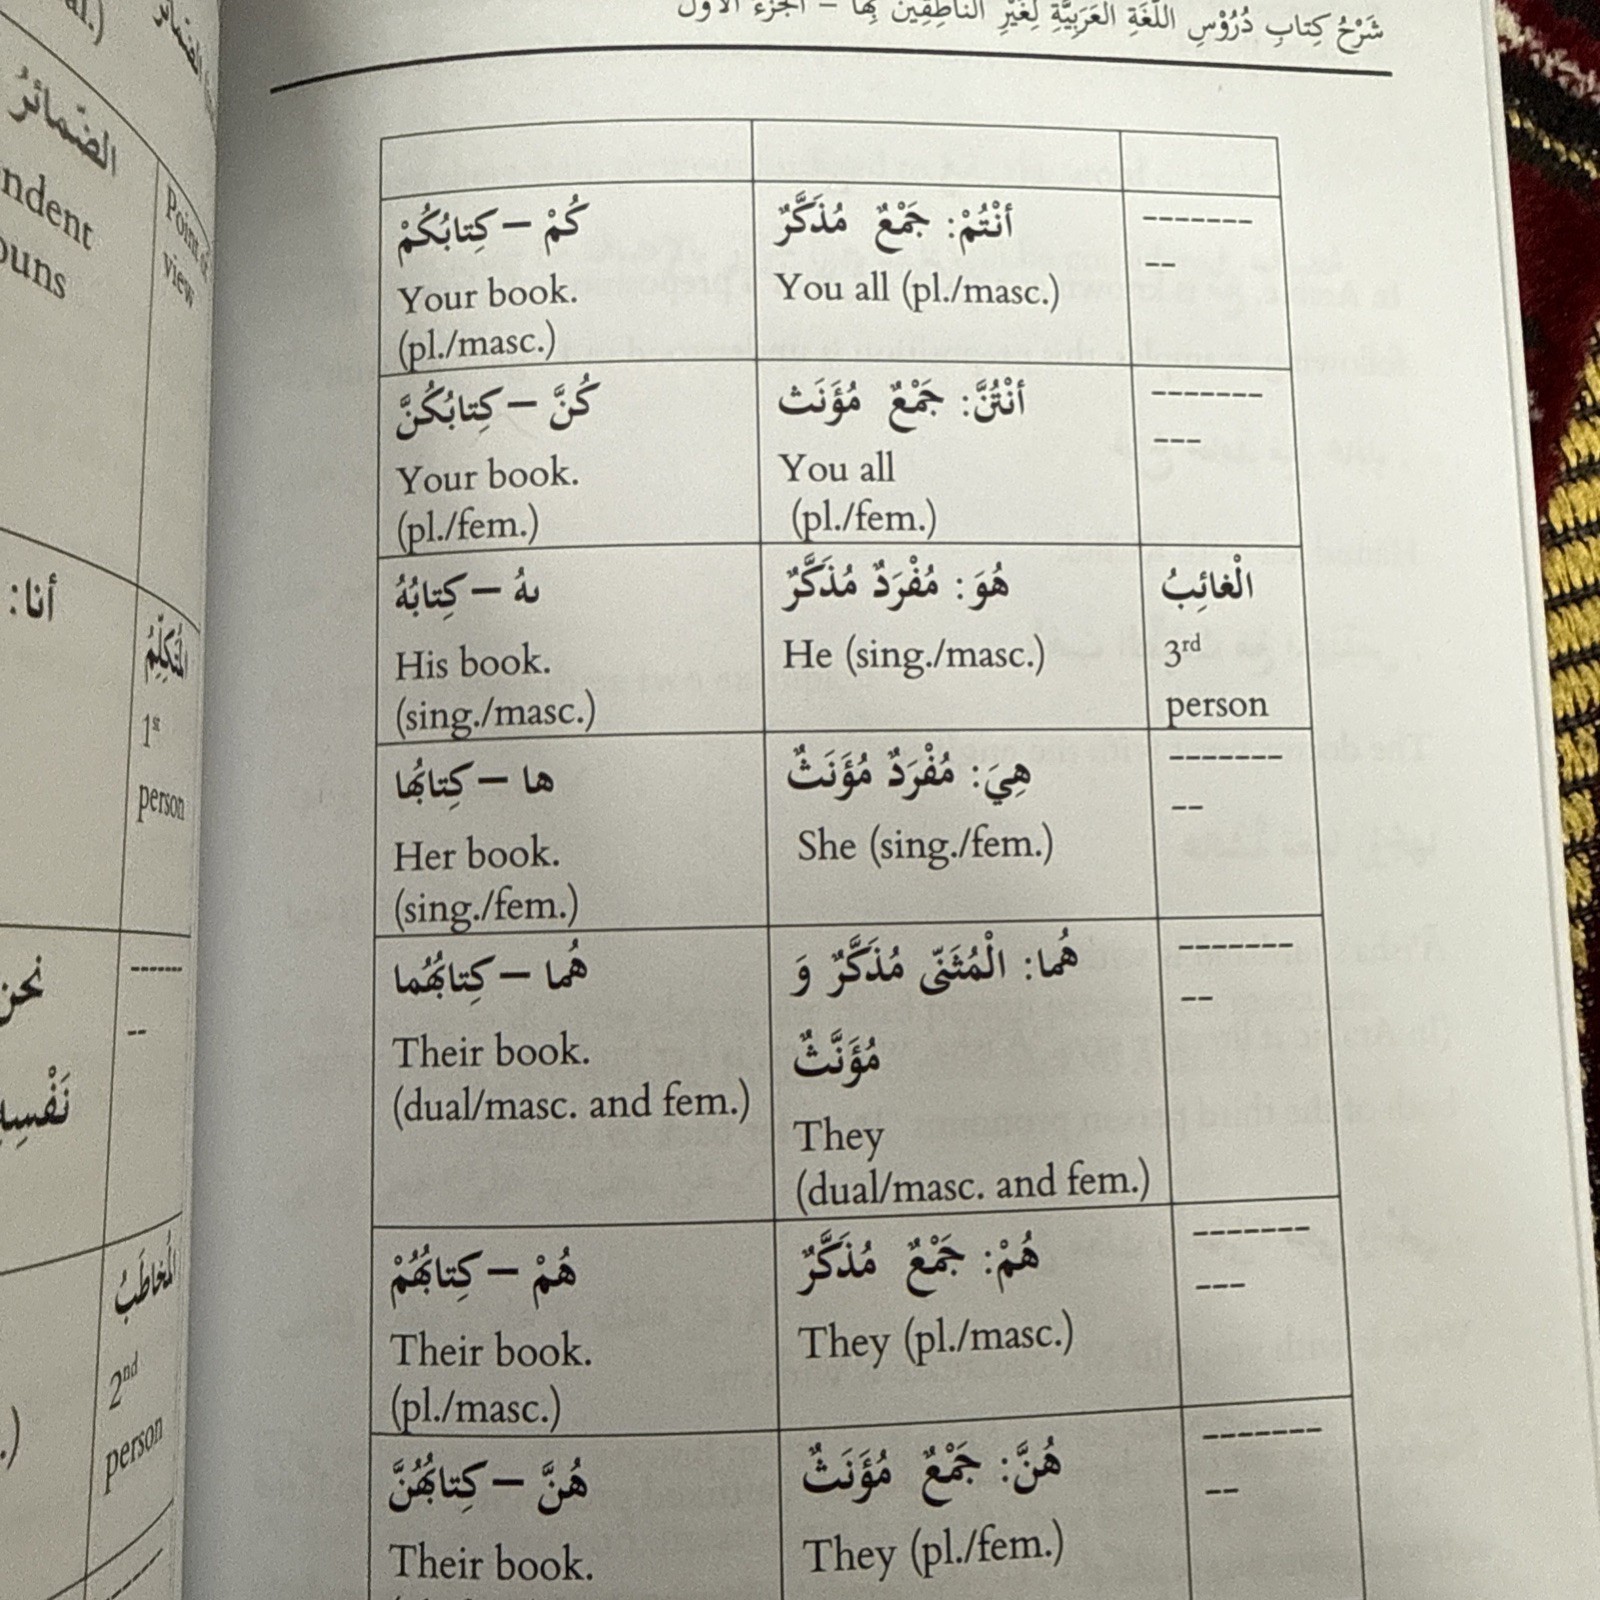 شَرْحُ كِتابِ دُرُوْسِ اللُّغَةِ العَرَبِيَّةِ لِغَيْرِ النّاطِقِيْنَ بِها – الجزء الأول
كُمْ – كِتابُكُمْ
Your book.
(pl./masc.)
أنْتُمْ: جَمْعٌ مُذَكَّرٌ
You all (pl./masc.)
-------
--
كُنَّ – كِتابُكُنَّ
Your book.
(pl./fem.)
أنْتُنَّ: جَمْعٌ مُؤَنَث
You all
(pl./fem.)
-------
---
ـهُ – كِتابُهُ
His book.
(sing./masc.)
هُوَ: مُفْرَدٌ مُذَكَّرٌ
He (sing./masc.)
الْغائِبُ
3rd
person
ها – كِتابُها
Her book.
(sing./fem.)
هِيَ: مُفْرَدٌ مُؤَنَثٌ
She (sing./fem.)
-------
--
هُما – كِتابُهُما
Their book.
(dual/masc. and fem.)
هُما: الْمُثَنّى مُذَكَّرٌ وَ
مُؤَنَّثٌ
They
(dual/masc. and fem.)
-------
--
هُمْ – كِتابُهُمْ
Their book.
(pl./masc.)
هُمْ: جَمْعٌ مُذَكَّرٌ
They (pl./masc.)
-------
---
هُنَّ – كِتابُهُنَّ
Their book.
هُنَّ: جَمْعٌ مُؤَنَثٌ
They (pl./fem.)
-------
--
الضّمائرُ
Point of
view
أنا:
المُتَكلِّمُ
1st
person
نحن
------
--
المُخاطَبُ
2nd
person